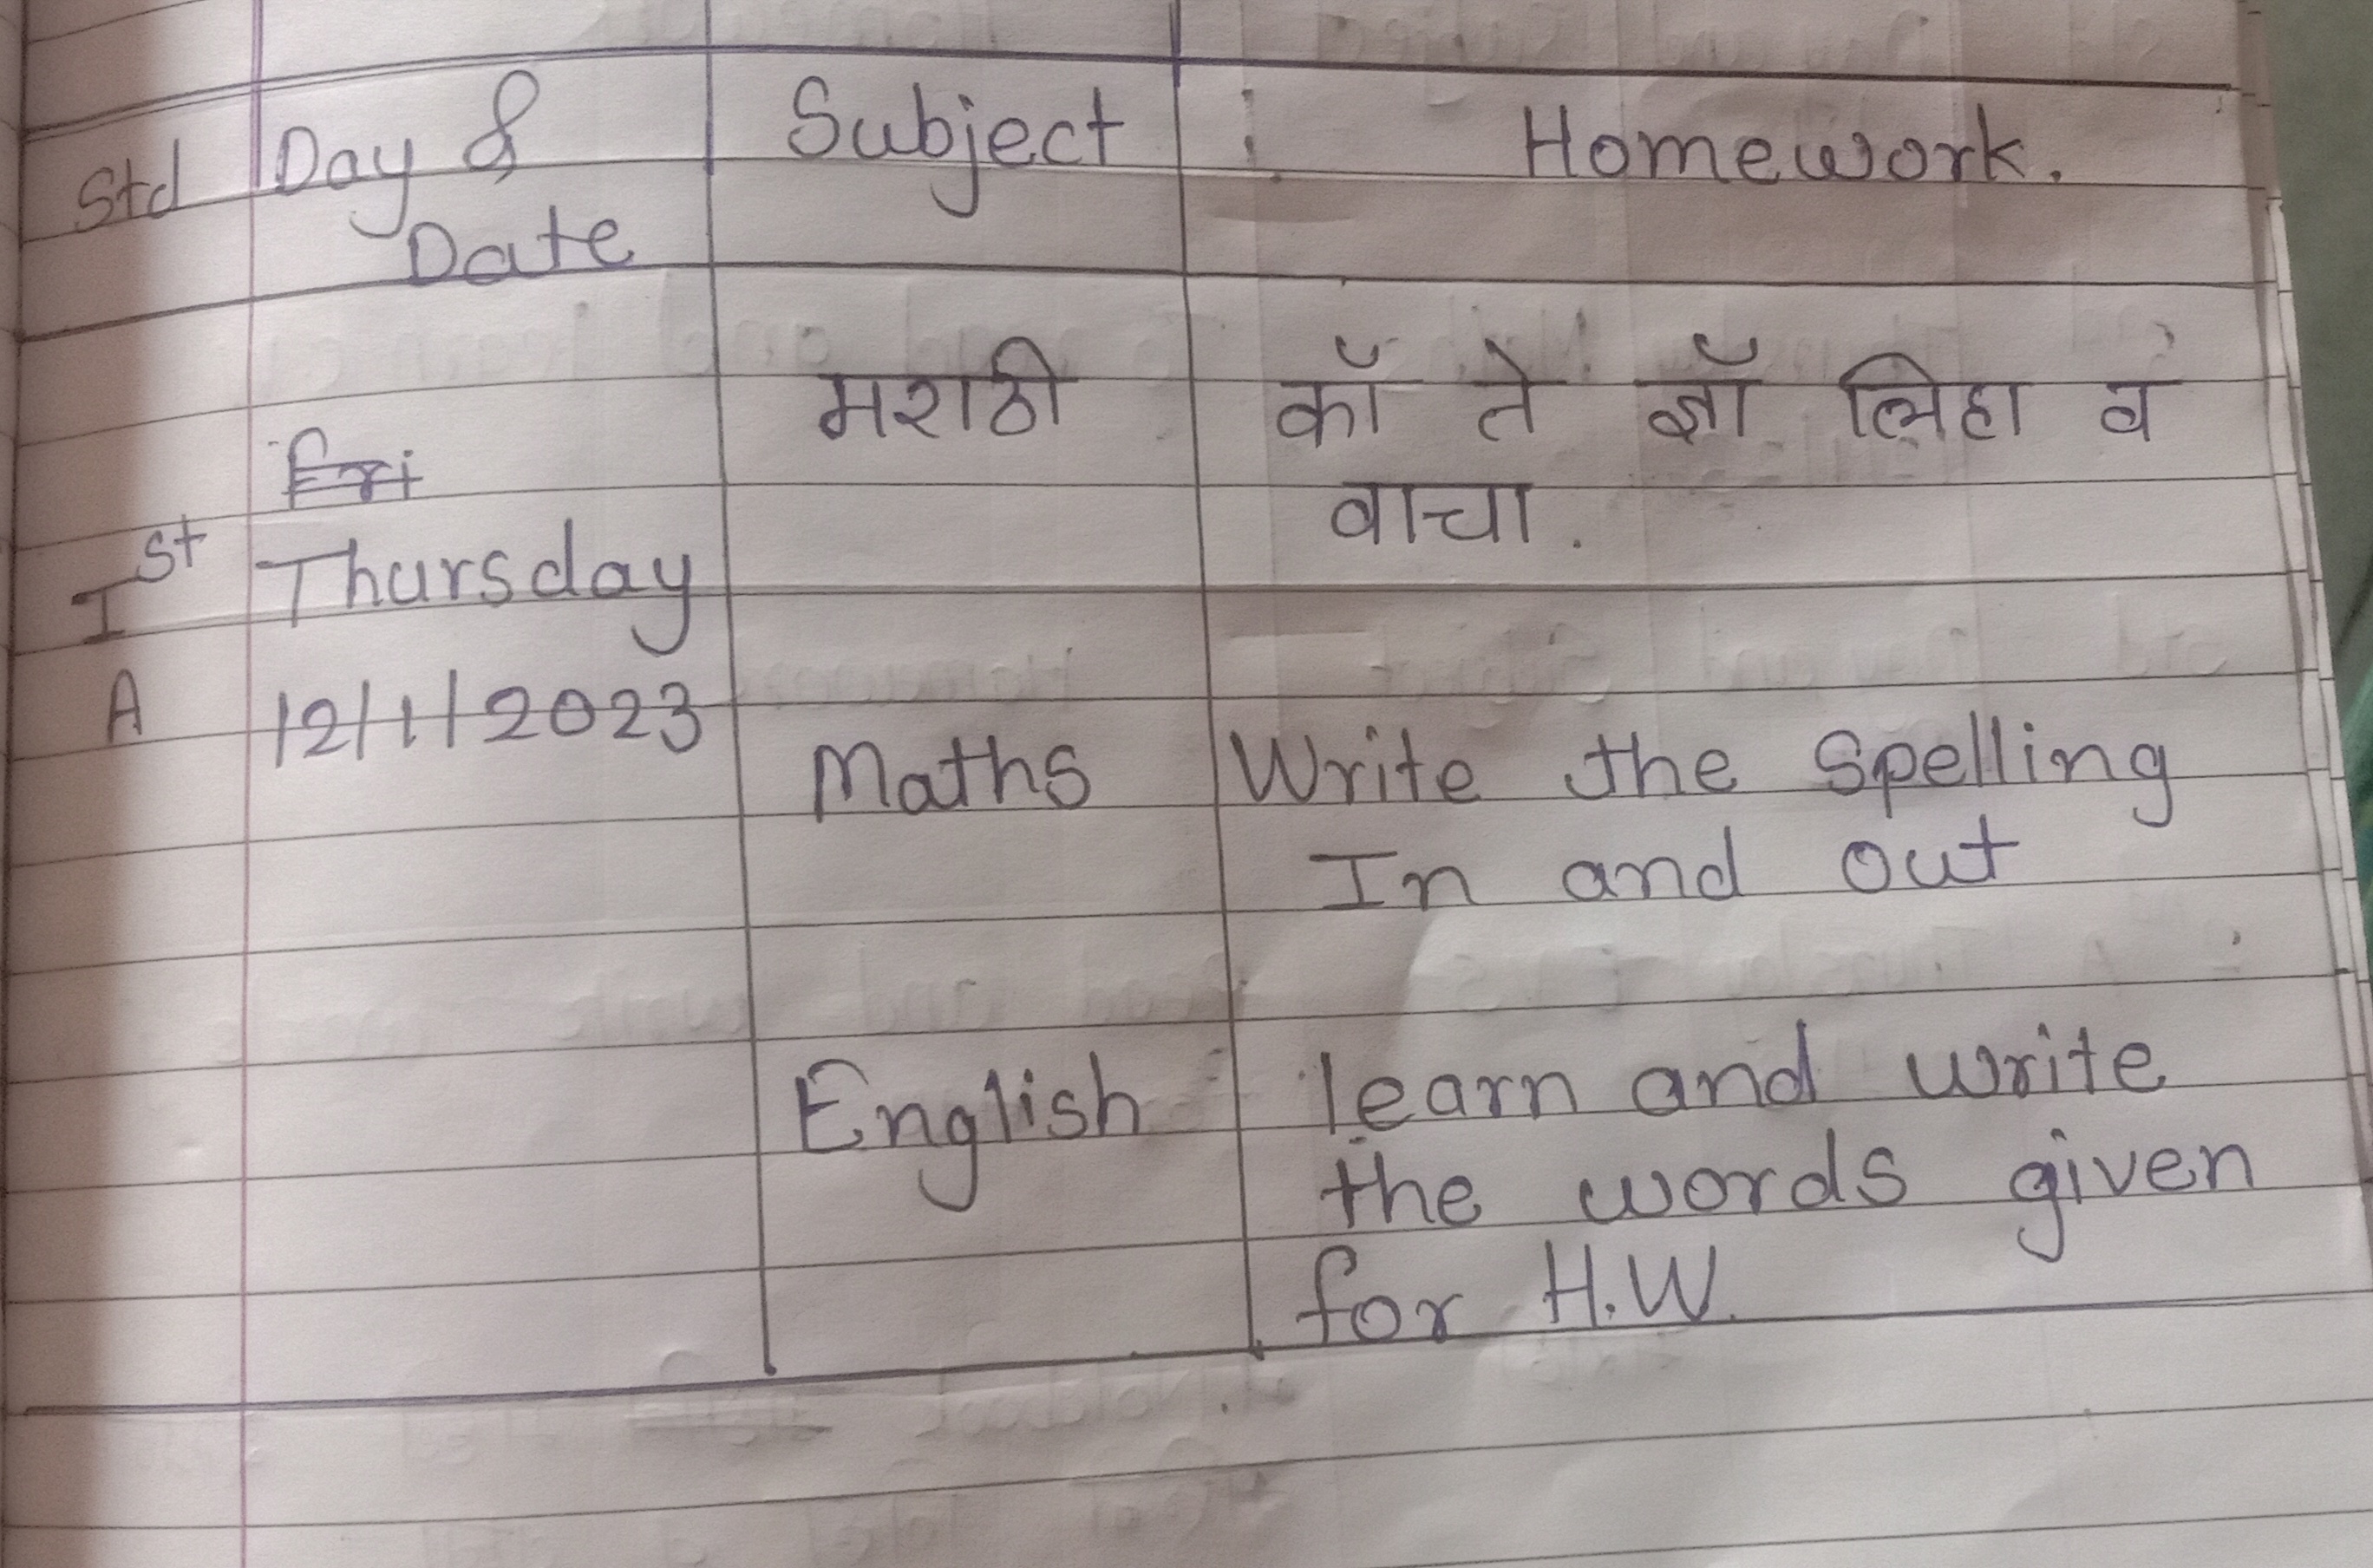 Std Day & Subject Homework.
Date
मराठी कॉ ते ज्ञॉ लिहा व
वाचा.
Fri
Ist Thursday
A 12/1/2023
Maths Write the spelling
In and out
English learn and write
the words given
for H.W.